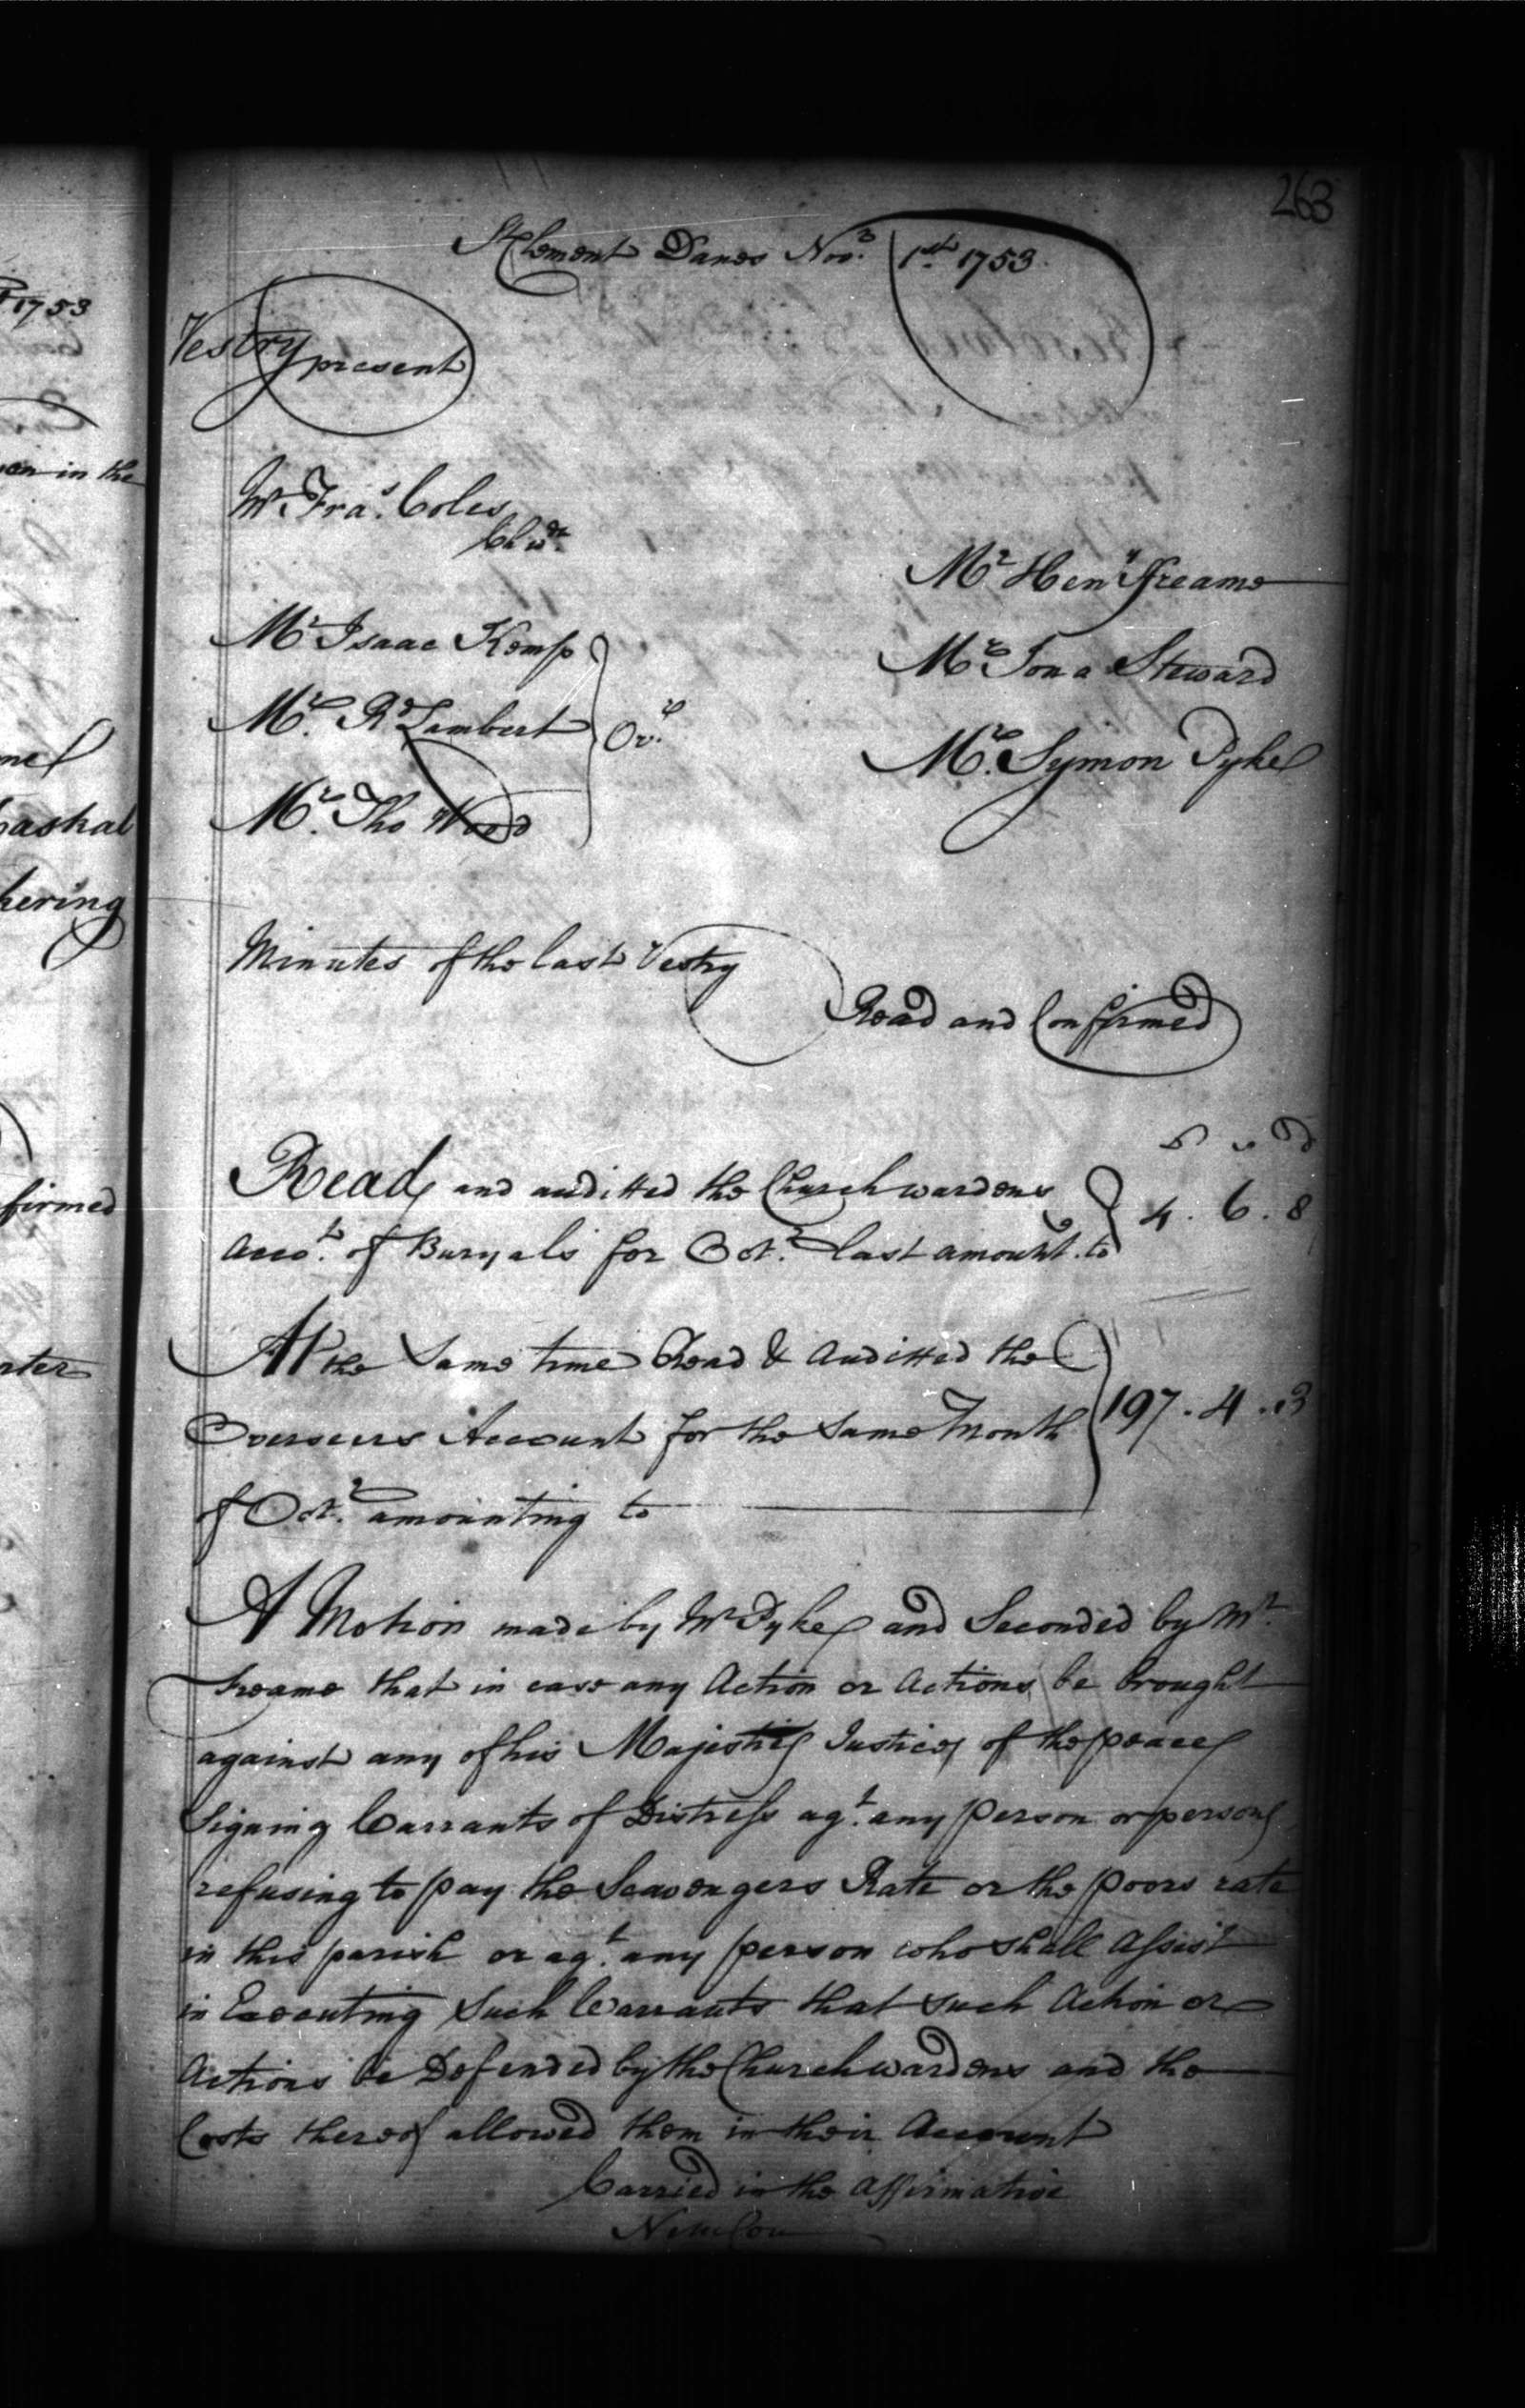 263
St Clement Danes Novr. 1st 1753
Vestry present
Mr Fras. Coles
Chwdn.
Mr Heny Freame
Mr Isaac Kemp
Mr Jona Steward
Mr. Rd Lambert
Ovr.
Mr. Symon Dyke
Mr. Tho Wood
Minutes of the last Vestry
Read and Confirmed
Read and auditted the Churchwardens
Acco.t of Buryals for Octr. last amountg. to
4 . 6 . 8
At the Same time Read & Auditted the
Overseers Account for the Same Month
197 . 4 . 3
of Octr. amounting to
A Motion made by Mr Dyke and Seconded by Mr.
Freame that in case any Action or Actions be brought
against any of his Majesties Justices of the peace
Signing Warrants of Distress agt. any Person or persons
refusing to pay the Scavengers Rate or the poors rate
in this parish or agt. any person who shall Assist
in Executing Such Warrants that such Action or
Actions be Defended by the Churchwardens and the
Costs thereof allowed them in their Account
Carried in the Affirmative
Nem Con
1753
in the
hering
firmed